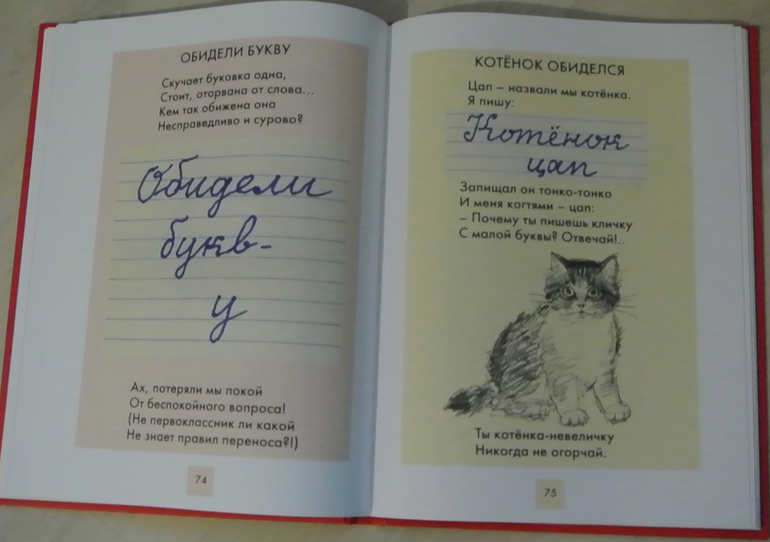 ОБИДЕЛИ БУКВУ
Скучает буковка одна,
Стоит, оторвана от слова...
Кем так обижена она
Несправедливо и сурово?
Обидели
букв-
у
Ах, потеряли мы покой
От беспокойного вопроса!
(Не первоклассник ли какой
Не знает правил переноса?!)
74
КОТЁНОК ОБИДЕЛСЯ
Цап – назвали мы котёнка.
Я пишу:
Котёнок
цап
Запищал он тонко-тонко
И меня когтями – цап:
– Почему ты пишешь кличку
С малой буквы? Отвечай!..
Ты котёнка-невеличку
Никогда не огорчай.
75